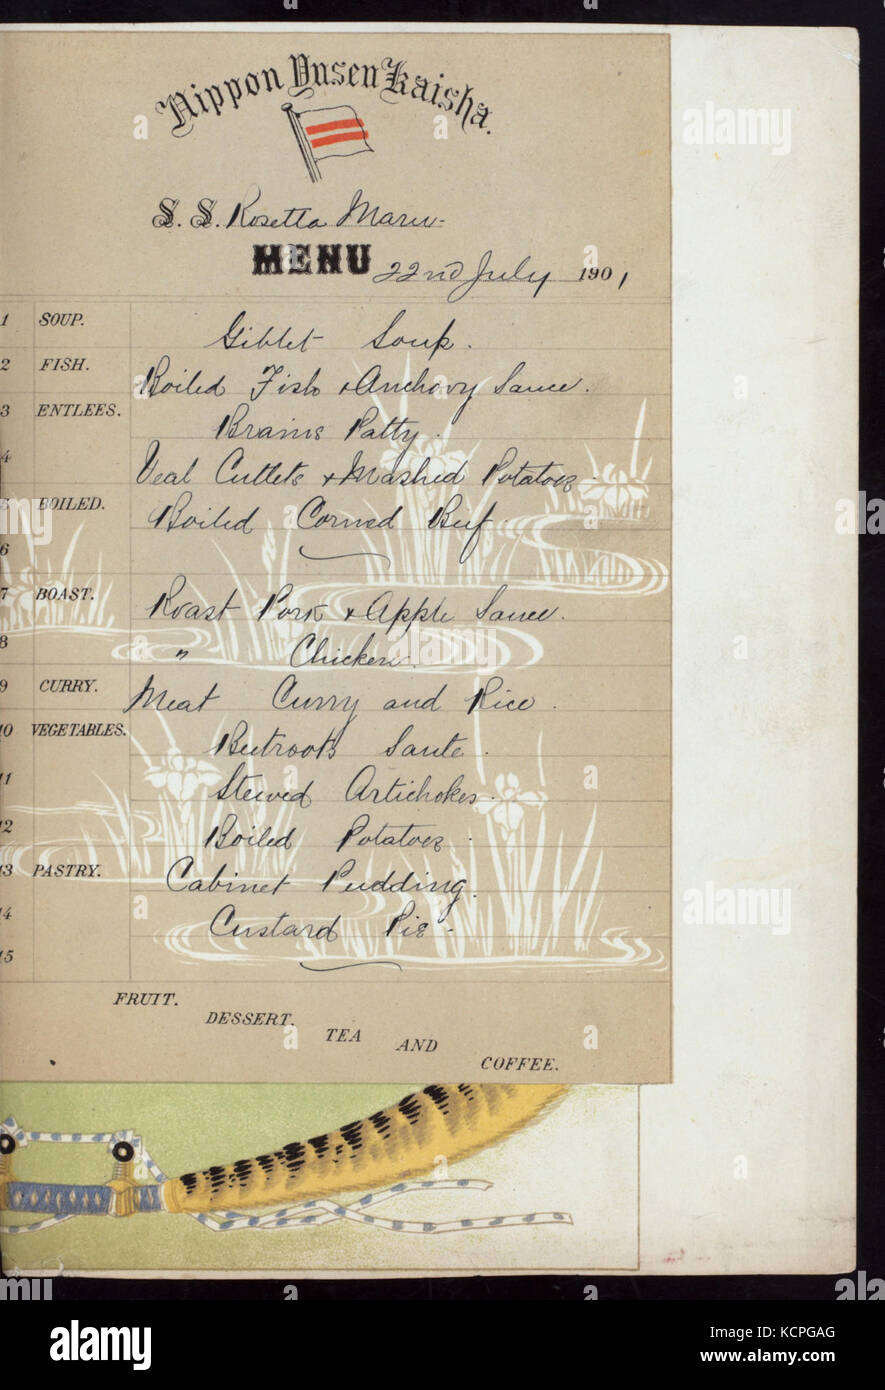 Nippon Yusen Kaisha.
S. S. Rosetta Maru.
MENU 22nd July 1901
1 SOUP. Giblet Soup.
2 FISH. Boiled Fish & Anchovy Sauce.
3 ENTLEES. Brains Patty.
4 Veal Cutlets & Mashed Potatoes.
5 BOILED. Boiled Corned Beef.
6
7 BOAST. Roast Pork & Apple Sauce.
8 " Chicken.
9 CURRY. Meat Curry and Rice.
10 VEGETABLES. Beetroots Saute.
11 Stewed Artichokes.
12 Boiled Potatoes.
13 PASTRY. Cabinet Pudding.
14 Custard Pie.
15
FRUIT.
DESSERT.
TEA
AND
COFFEE.
alamy
Image ID: KCPGAG
www.alamy.com